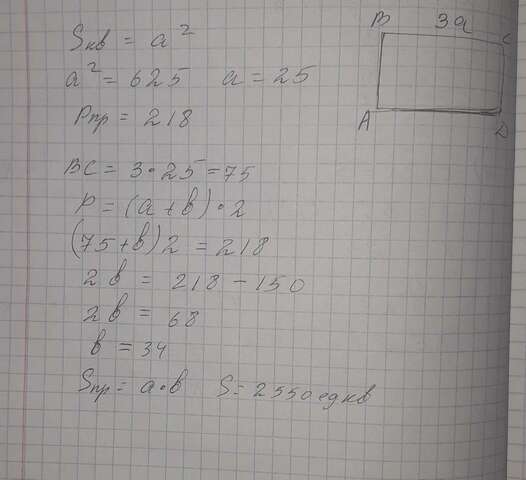 Sкв = a²
a² = 625 a = 25
Pпр = 218
BC = 3·25 = 75
P = (a + b)·2
(75 + b) 2 = 218
2b = 218 - 150
2b = 68
b = 34
Sпр = a·b S = 2550 ед кв
B 3a C
A D